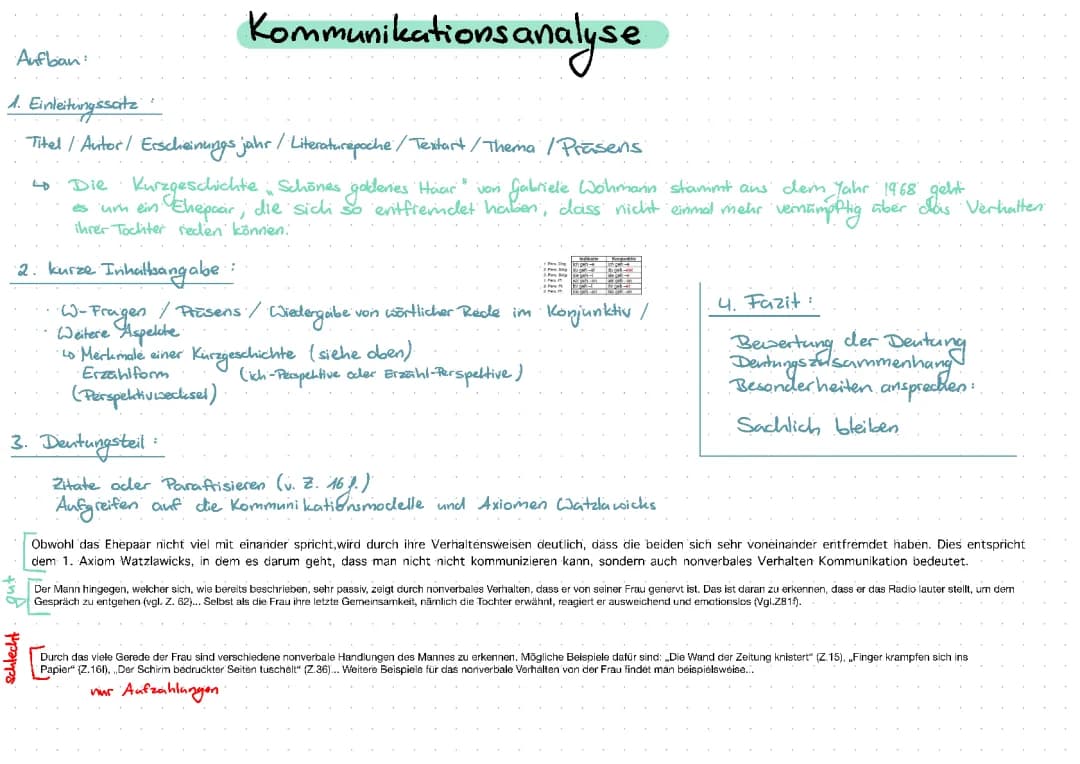 Kommunikationsanalyse
Aufbau:
1. Einleitungssatz :
Titel / Autor / Erscheinungsjahr / Literaturepoche / Textart / Thema / Präsens
↳ Die Kurzgeschichte „Schönes goldenes Haar" von Gabriele Wohmann stammt aus dem Jahr 1968 geht
es um ein Ehepaar, die sich so entfremdet haben, dass nicht einmal mehr vernümpftig über das Verhalten
ihrer Tochter reden können.
2. kurze Inhaltsangabe :
Indikativ Konjunktiv
1 Pers. Sing
2 Pers. Sing
3 Pers. Sing
1 Pers. Pl
2 Pers. Pl
3 Pers. Pl
· W-Fragen / Präsens / Wiedergabe von wörtlicher Rede im Konjunktiv /
· Weitere Aspekte
↳ Merkmale einer Kurzgeschichte (siehe oben)
Erzählform (Ich-Perspektive oder Erzähl-Perspektive)
(Perspektivwechsel)
4. Fazit :
Bewertung der Deutung
Deutungszusammenhang
Besonderheiten ansprechen:
Sachlich bleiben
3. Deutungsteil :
Zitate oder Parafrisieren (v. Z. 16 f.)
Aufgreifen auf die Kommunikationsmodelle und Axiomen Watzlawicks
Obwohl das Ehepaar nicht viel mit einander spricht,wird durch ihre Verhaltensweisen deutlich, dass die beiden sich sehr voneinander entfremdet haben. Dies entspricht
dem 1. Axiom Watzlawicks, in dem es darum geht, dass man nicht nicht kommunizieren kann, sondern auch nonverbales Verhalten Kommunikation bedeutet.
gut
Der Mann hingegen, welcher sich, wie bereits beschrieben, sehr passiv, zeigt durch nonverbales Verhalten, dass er von seiner Frau genervt ist. Das ist daran zu erkennen, dass er das Radio lauter stellt, um dem
Gespräch zu entgehen (vgl. Z. 62)... Selbst als die Frau ihre letzte Gemeinsamkeit, nämlich die Tochter erwähnt, reagiert er ausweichend und emotionslos (Vgl.Z81f).
schlecht
Durch das viele Gerede der Frau sind verschiedene nonverbale Handlungen des Mannes zu erkennen. Mögliche Beispiele dafür sind: „Die Wand der Zeitung knistert" (Z.15), „Finger krampfen sich ins
Papier" (Z.16f), „Der Schirm bedruckter Seiten tuschelt" (Z.36)... Weitere Beispiele für das nonverbale Verhalten von der Frau findet man beispielsweise...
nur Aufzahlungen